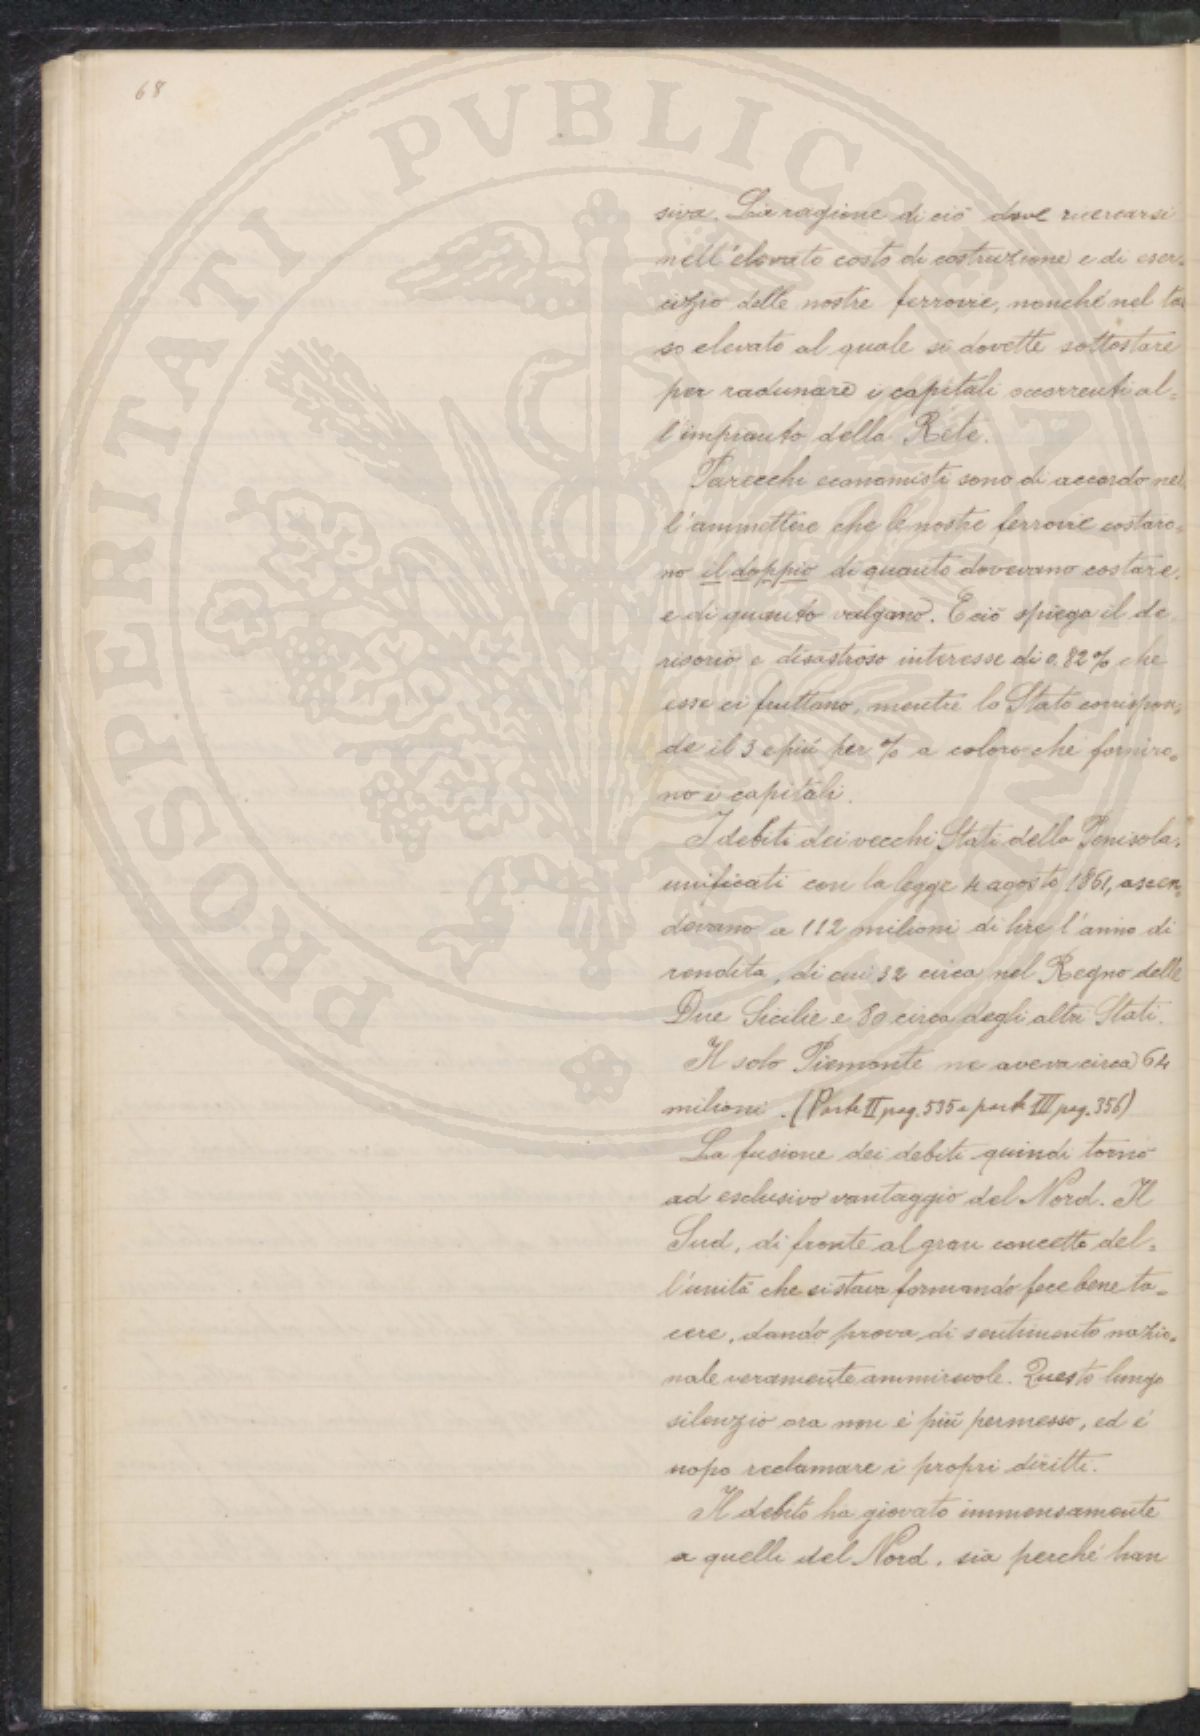 68
PROSPERITATI PVBLICAE
siva. La ragione di ciò deve ricercarsi
nell'elevato costo di costruzione e di eser=
cizio delle nostre ferrovie, nonché nel tas
so elevato al quale si dovette sottostare
per radunare i capitali occorrenti al=
l'impianto della Rete.
Parecchi economisti sono di accordo nel
l'ammettere che le nostre ferrovie costaro=
no il doppio di quanto dovevano costare,
e di quanto valgano. E ciò spiega il de
risorio e disastroso interesse di 0,82% che
esse ci fruttano, mentre lo Stato corrispon=
de il 3 e più per % a coloro che forniro=
no i capitali.
I debiti dei vecchi Stati della Penisola,
unificati con la legge 4 agosto 1861, ascen=
devano a 112 milioni di lire l'anno di
rendita, di cui 32 circa nel Regno delle
Due Sicilie e 80 circa degli altri Stati.
Il solo Piemonte ne aveva circa 64
milioni. (Parte II pag. 535 e parte III pag. 356)
La fusione dei debiti quindi tornò
ad esclusivo vantaggio del Nord. Il
Sud, di fronte al gran concetto del=
l'unità che si stava formando fece bene ta=
cere, dando prova di sentimento nazio=
nale veramente ammirevole. Questo lungo
silenzio ora non è più permesso, ed è
uopo reclamare i propri diritti.
Il debito ha giovato immensamente
a quelli del Nord, sia perché han